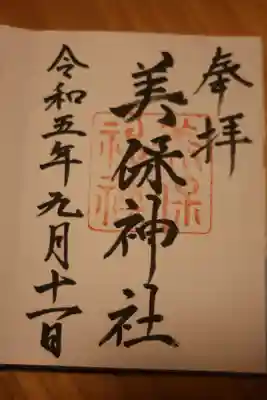 奉拝
美保神社
令和五年九月十一日